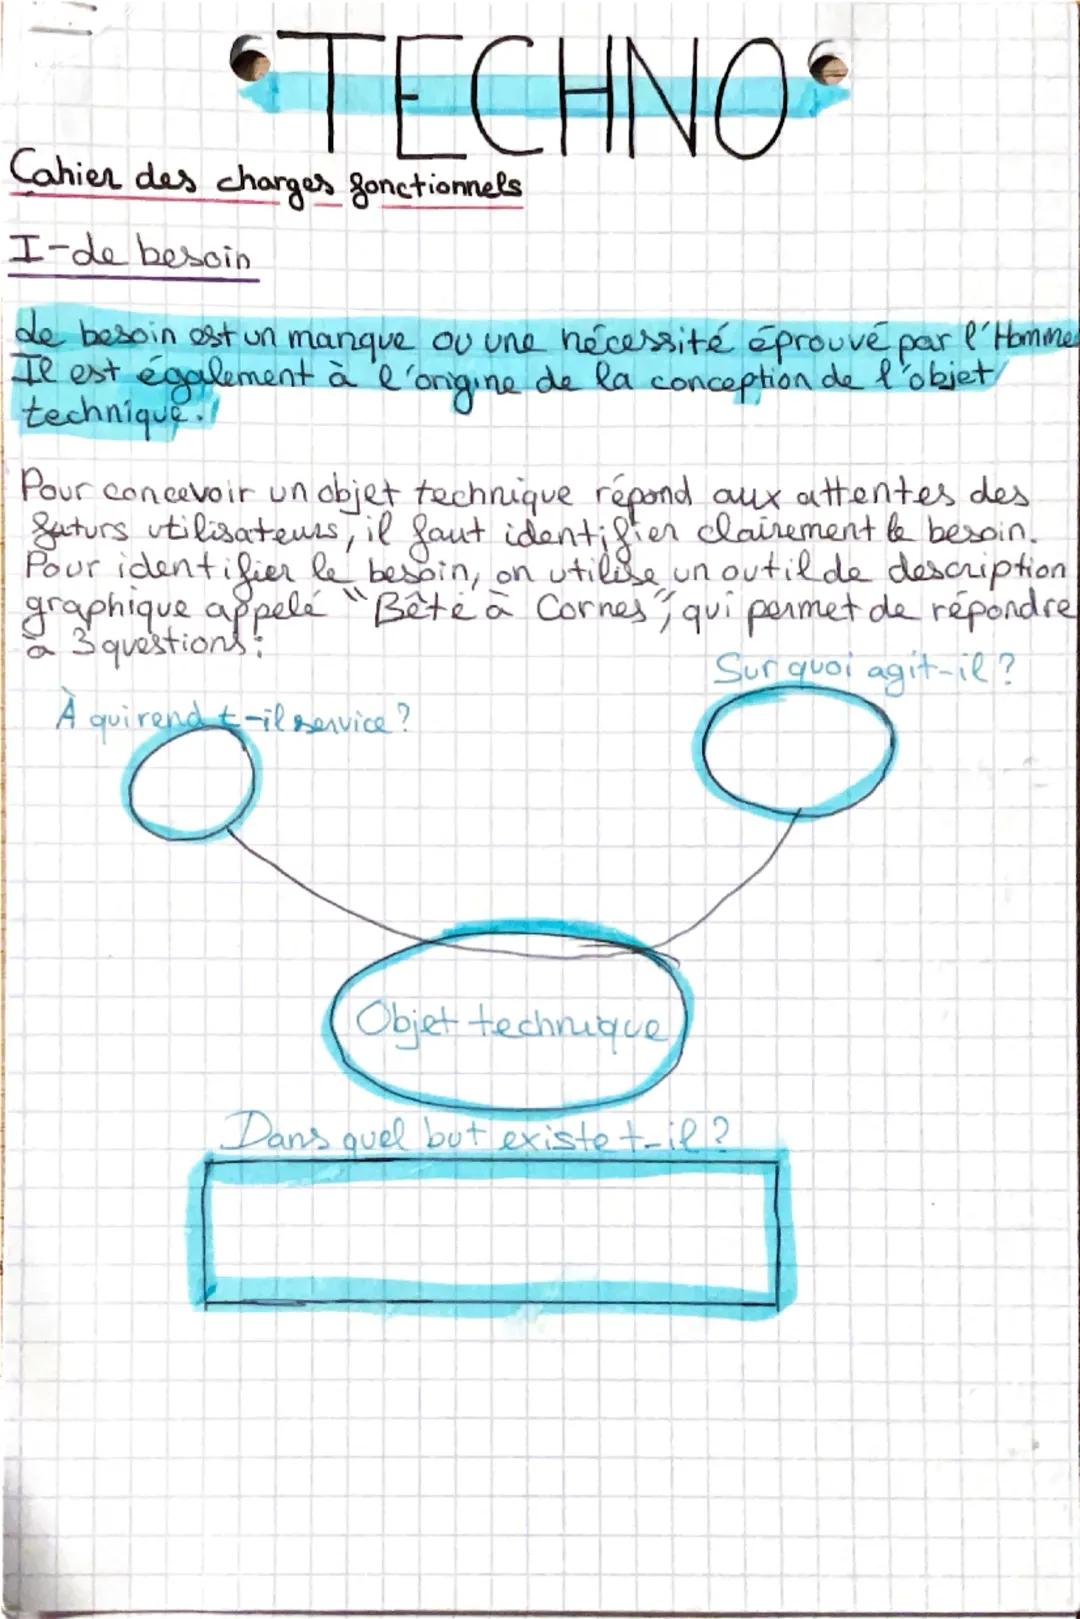 TECHNO
Cahier des charges fonctionnels
I-Le besoin
Le besoin est un manque ou une nécessité éprouvé par l'Homme
Il est également à l'origine de la conception de l'objet
technique.
Pour concevoir un objet technique répond aux attentes des
futurs utilisateurs, il faut identifier clairement le besoin.
Pour identifier le besoin, on utilise un outil de description
graphique appelé "Bête à Cornes", qui permet de répondre
à 3 questions:
Sur quoi agit-il?
À qui rend t-il service?
Objet technique
Dans quel but existe t-il?